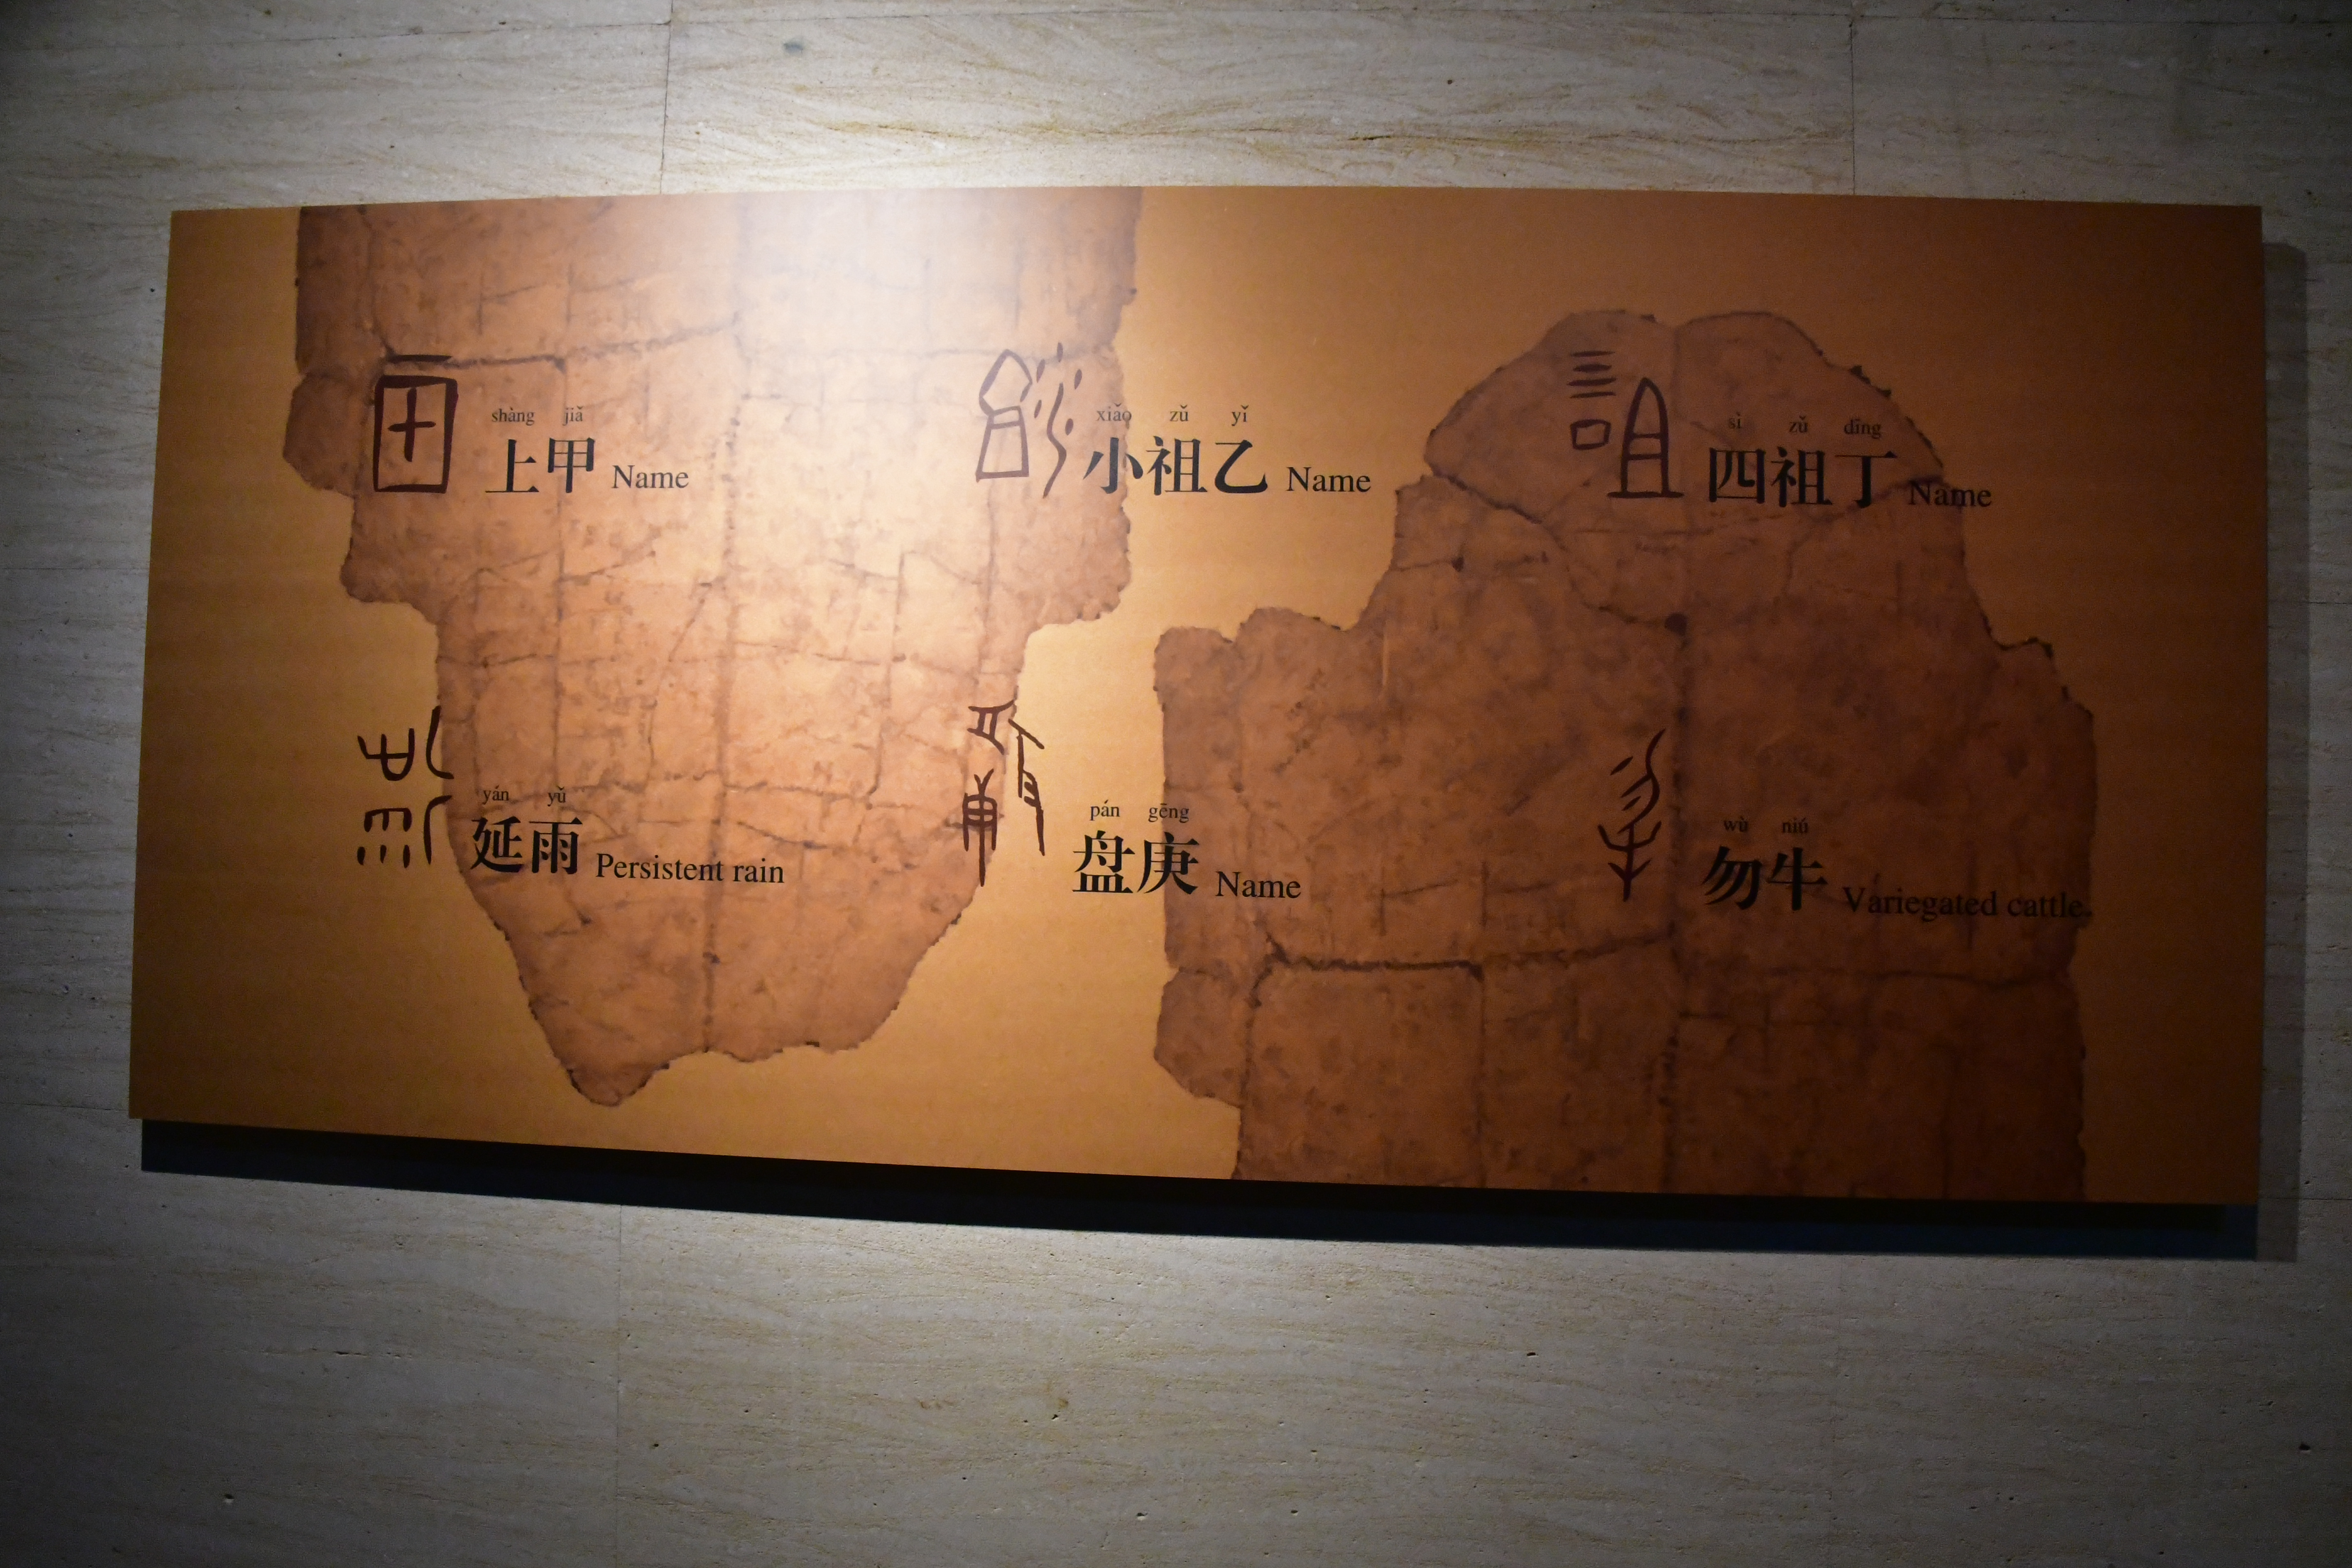 shàng jiǎ
上甲 Name
xiǎo zǔ yǐ
小祖乙 Name
sì zǔ dīng
四祖丁 Name
yán yǔ
延雨 Persistent rain
pán gēng
盘庚 Name
wù niú
勿牛 Variegated cattle.